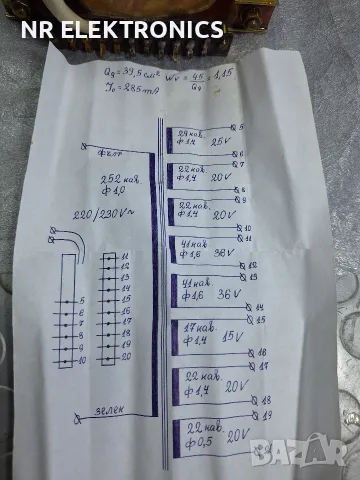 NR ELEKTRONICS
Qq = 39,5 см² Wv = 45/Qq = 1,15
Jo = 285 mA
жълт
252 нав.
ф 1,0
220/230V~
зелен
29 нав.
ф1,4 25V
22 нав.
ф1,4 20V
22 нав.
ф1,4 20V
41 нав.
ф1,6 36V
41 нав.
ф1,6 36V
17 нав.
ф1,4 15V
22 нав.
ф1,4 20V
22 нав.
ф 0,5 20V
5
6
7
8
9
10
11
12
13
14
15
16
17
18
19
5
6
7
8
9
10
11
12
13
14
15
16
17
18
19
20
BAZAR